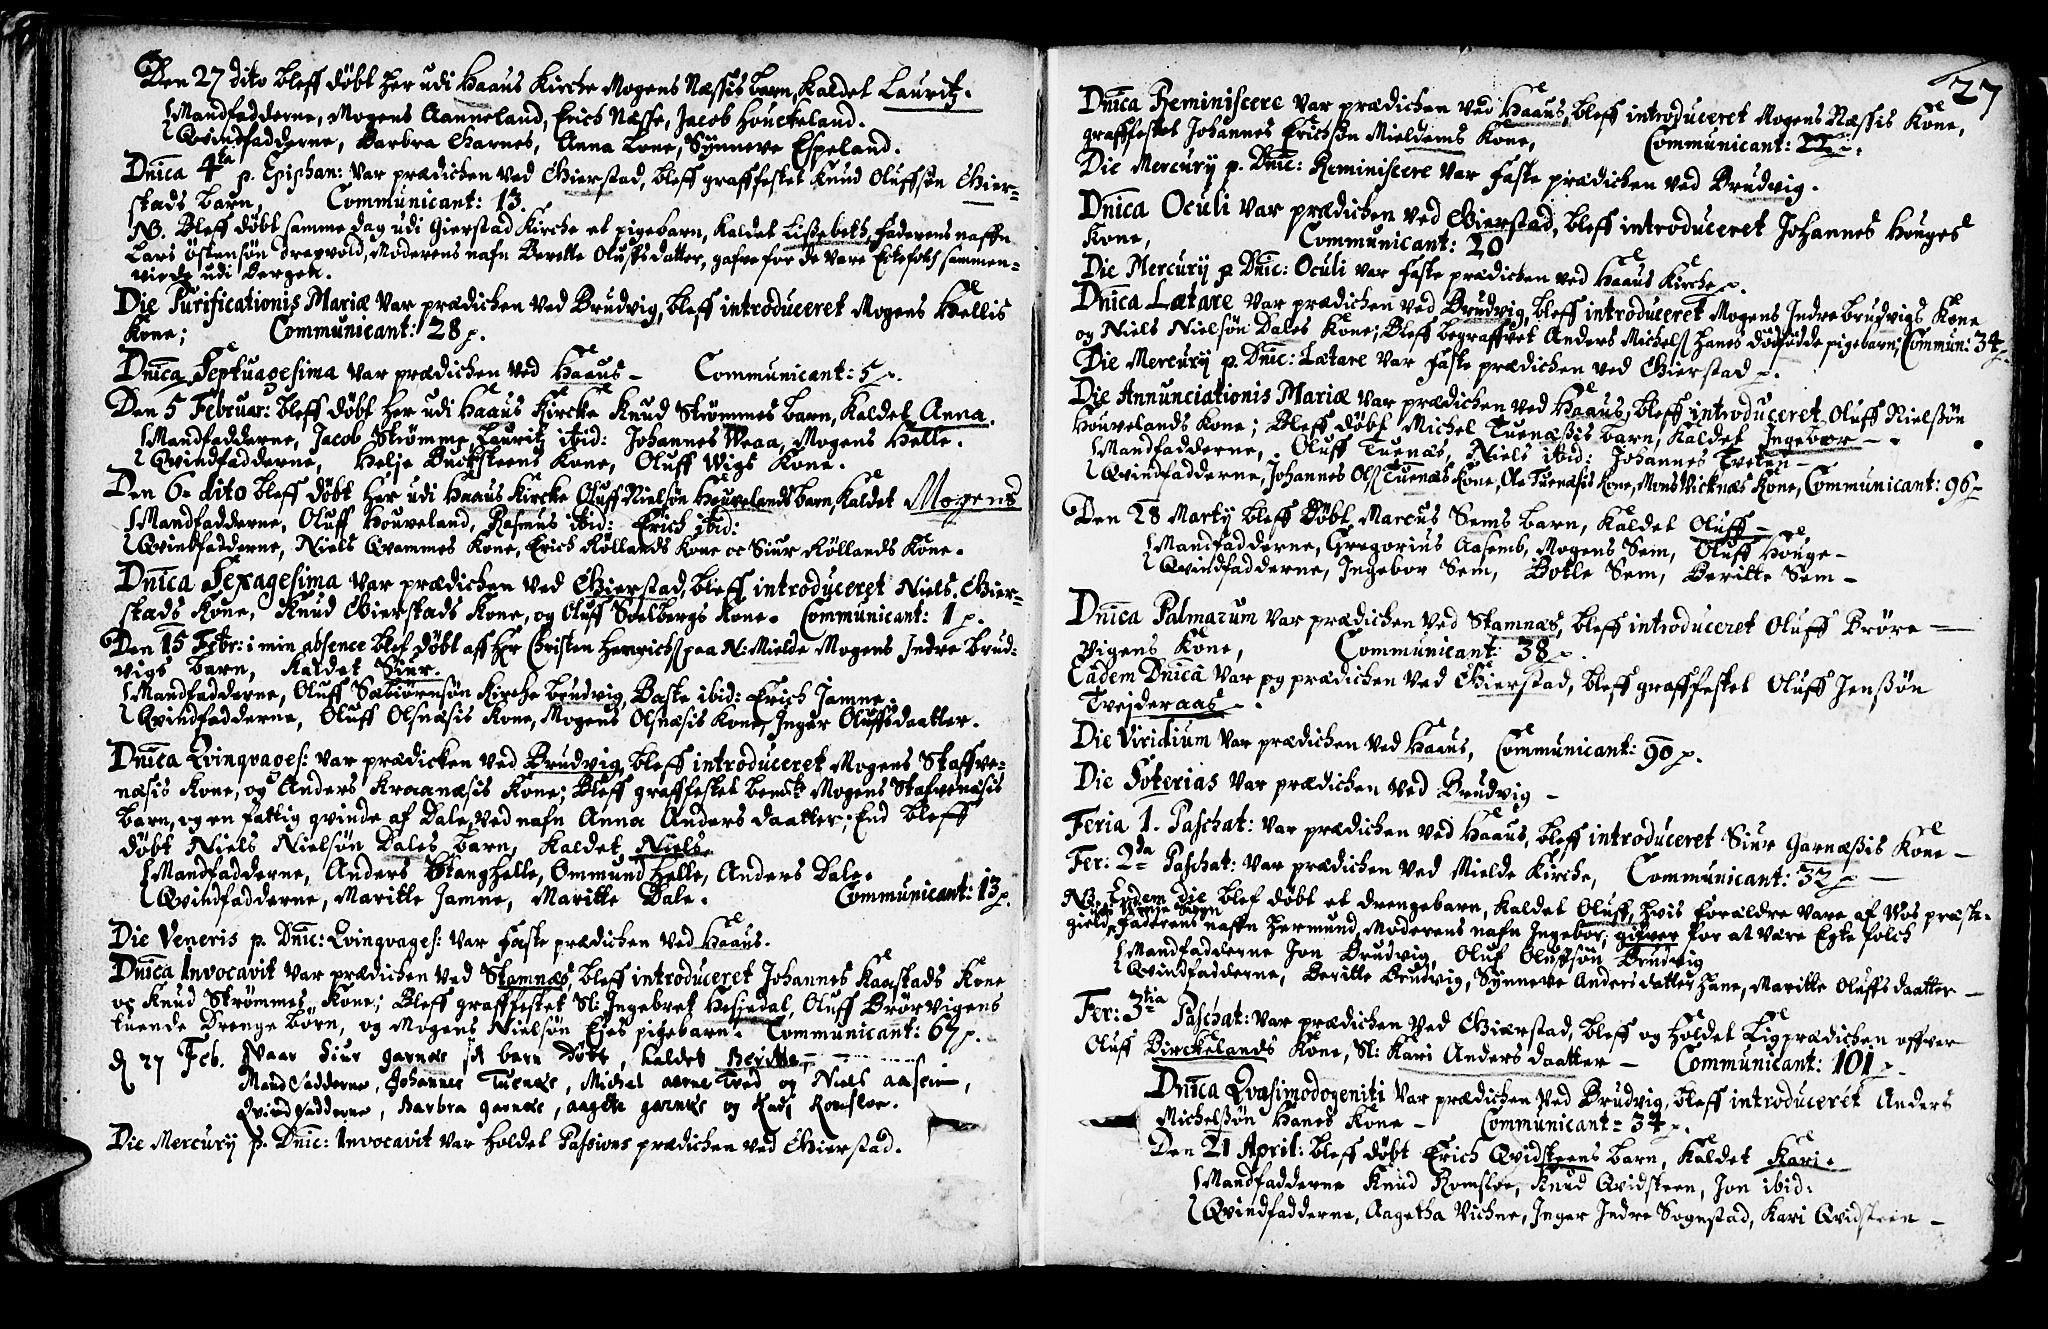 Den 27 dito bleff döbt her udi Haaus Kirche Mogens Næssis barn, Kaldet Lauritz.
Mandfadderne, Mogens Aanneland, Erich Næsse, Jacob Houckeland.
Qvindfadderne, Barbra Gharnes, Anna Lone, Synneve Espeland.
Dnica 4ta p. Epiphan: var prædichen ved Gierstad, bleff graffestet Knud Oluffsøn Gier-
stads barn, Communicant: 13.
NB. Bleff döbt samme dag udi Gierstad Kirche et pigebarn, Kaldet Lissebeth, Faderens naffn
Lars Östensön Drepvold, Moderens nafn Berette Oluffsdatter, gafve for de vare Ectefolch sammen-
viede udi Bergen.
Die Purificationis Mariæ var prædichen ved Brudvig, bleff introduceret Mogens Hellis
Kone; Communicant: 28 p.
Dnica Septuagesima var prædichen ved Haaus - Communicant: 5 p.
Den 5 Februar: bleff döbt her udi Haaus Kircke Knud Strömmes barn, Kaldet Anna.
Mandfadderne, Jacob Strömme, Lauritz ibid: Johannes Weaa, Mogens Helle.
Qvindfadderne, Helje Bucksteens Kone, Oluff Wigs Kone.
Den 6 dito bleff döbt her udi Haaus Kircke Oluff Nielsön Houvelands barn, Kaldet Mogens
Mandfadderne, Oluff Houveland, Rasmus ibid: Erich ibid:
Qvindfadderne, Niels Qvammes Kone, Erich Röllands Kone oc Siur Röllands Kone.
Dnica Sexagesima var prædichen ved Gierstad, bleff introduceret Niels Gier-
stads Kone, Knud Gierstads Kone, og Oluff Soelbergs Kone. Communicant: 1 p.
Den 15 Febr: i min absence blef döbt aff Hr Christen Henrichs paa N: Mielde Mogens Indre Brud-
vigs barn, Kaldet Siur.
Mandfadderne, Oluff Sabiörnsön Kirche brudvig, Baste ibid: Erich Jamne.
Qvindfadderne, Oluff Olsnæsis Kone, Mogens Olsnæsis Kone, Inger Oluffsdaatter.
Dnica Qvinqvages: var prædicken ved Brudvig, bleff introduceret Mogens Staffve-
næsis Kone, og Anders Kraanæsis Kone; Bleff graffestet bemte Mogens Stafvenæsis
barn, og en fattig qvinde af Dale, ved nafn Anna Anders daatter; End bleff
döbt Niels Nielsön Dales barn, Kaldet Niels
Mandfadderne, Anders Stanghelle, Ommund Helle, Anders Dale.
Qvindfadderne, Maritte Jamne, Maritte Dale. Communicant: 13 p.
Die Veneris p. Dnic: Qvinqvages: var Faste prædichen ved Haaus.
Dnica Invocavit var prædichen ved Stamnæs, bleff introduceret Johannes Kaastads Kone
oc Knud Strömmes Kone; Bleff graffestet Sl: Ingebret Hesjedal, Oluff Brörvigens
tuende Drenge börn, og Mogens Nielsön Eies pigebarn. Communicant: 67 p.
d 27 Feb. Naar Siur garnæs sit barn döbt, kaldet Beritte -
Mandfadderne, Johannes Tuenæs, Michel aarne Tved og Niels aasein,
Qvindfadderne, Barbra garnæs, aagete garnæs og Knud Romsloe.
Die Mercurij p. Dnic: Invocavit var holdet Passions prædichen ved Gierstad.
27
Dnica Reminiscere var prædichen ved Haaus, bleff introduceret Mogens Næssis Kone,
graffestet Johannes Erichsøn Mieldems Kone, Communicant: 22 p.
Die Mercurij p. Dnic: Reminiscere var Faste prædichen ved Brudvig.
Dnica Oculi var prædichen ved Gierstad, bleff introduceret Johannes Houges
Kone, Communicant: 20
Die Mercurij p Dnic: Oculi var Faste prædichen ved Haaus Kirche p.
Dnica Lætare var prædichen ved Brudvig, bleff introduceret Mogens Indre brudvigs Kone
og Niels Nielsön Dales Kone; Bleff begraffvet Anders Michels Hanes dödfödde pigebarn; Commun: 34 p.
Die Mercurij p. Dnic: Lætare var Faste prædichen ved Gierstad p.
Die Annunciationis Mariæ var prædichen ved Haaus, bleff introduceret Oluff Nielssön
Houvelands Kone; Bleff döbt Michel Tuenæssis barn, Kaldet Ingebor -
Mandfadderne, Oluff Tuenæs, Niels ibid: Johannes Tveten -
Qvindfadderne, Johannes Ols Tuenæs Kone, Ole Tuenæsis Kone, Mons Vicknæs Kone, Communicant: 96 -
Den 28 Martij bleff Döbt Marcus Sems barn, Kaldet Oluff -
Mandfadderne, Gregorius Aasemb, Mogens Sem, Oluff Houge -
Qvindfadderne, Ingebor Sem, Botle Sem, Beritte Sem -
Dnica Palmarum var prædichen ved Stamnæs, bleff introduceret Oluff Bröre -
vigens Kone, Communicant: 38 p.
Eadem Dnica var og prædichen ved Gierstad, bleff graffestet Oluff Jenssön
Tvejderaas -
Die Viridium var prædichen ved Haaus, Communicant: 90 p.
Die Soterias var prædichen ved Brudvig -
Feria 1. Paschat: var prædichen ved Haaus, bleff introduceret Siur Garnæssis Kone -
Fer: 2da Paschat: var prædichen ved Mielde Kirche, Communicant: 32 p -
NB. Eodem die blef döbt et drengebarn, Kaldet Oluff, hvis forældre vare af Vos præste-
gield, Faderens naffn Hermund, Moderens nafn Ingebor, gifver for at være Egte folch
Mandfadderne Jon Brudvig, Oluf Olufsön Brudvig
Qvindfadderne, Beritte Brudvig, Synneve Andersdatter Hane, Maritte Oluffsdaatter -
Fer: 3tia Paschat: var prædichen ved Gierstad, bleff og holdet Ligprædichen offver
Oluff Birckelands Kone, Sl: Kari Anders daatter - Communicant: 101 p.
Dnica Qvasimodogeniti var prædichen ved Brudvig, bleff introduceret Anders
Michelssön Hanes Kone - Communicant: 34 p.
Den 21 April: bleff döbt Erich Qvidsteens barn, Kaldet Kari.
Mandfadderne Knud Romsloe, Knud Qvidsteen, Jon ibid:
Qvindfadderne, Aagetha Vichne, Inger Indre Sognstad, Kari Qvidsteen -